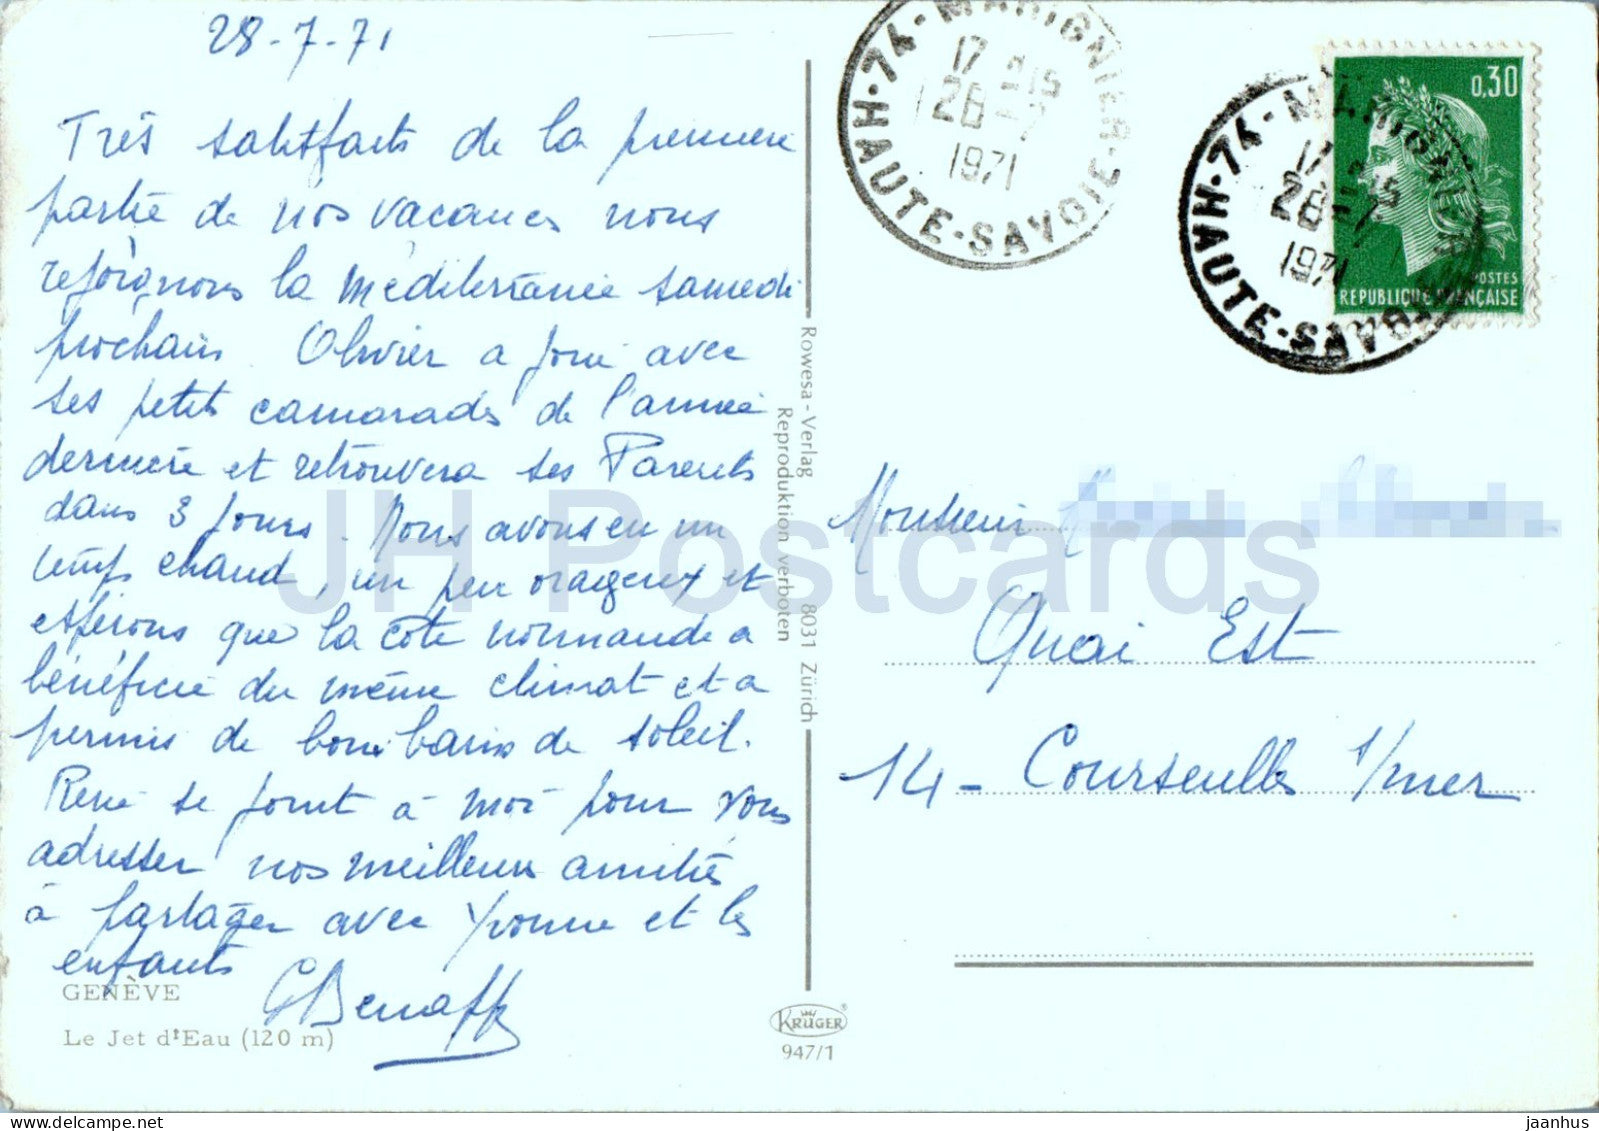 28-7-71
Très satisfaits de la première
partie de nos vacances nous
rejoignons la Méditerranée samedi
prochain. Olivier a joué avec
ses petits camarades de l'année
dernière et retrouvera ses Parents
dans 3 jours. Nous avons eu un
temps chaud, un peu orageux et
espérons que la côte normande a
bénéficié du même climat et a
permis de bons bains de soleil.
René se joint à moi pour vous
adresser nos meilleures amitiés
à partager avec Yvonne et les
enfants
GENÈVE
Le Jet d'Eau (120 m)
Rowesa-Verlag 8031 Zürich
Reproduktion verboten
KRÜGER
947/1
74-MARIGNIER
17 H 15
28-7
1971
HAUTE-SAVOIE
74-MARIGNIER
17 H 15
28-7
1971
HAUTE-SAVOIE
0,30
POSTES
REPUBLIQUE FRANÇAISE
Monsieur
Quai Est
14 - Courseulles s/mer
JH Postcards
jaanhus / delcampe.net